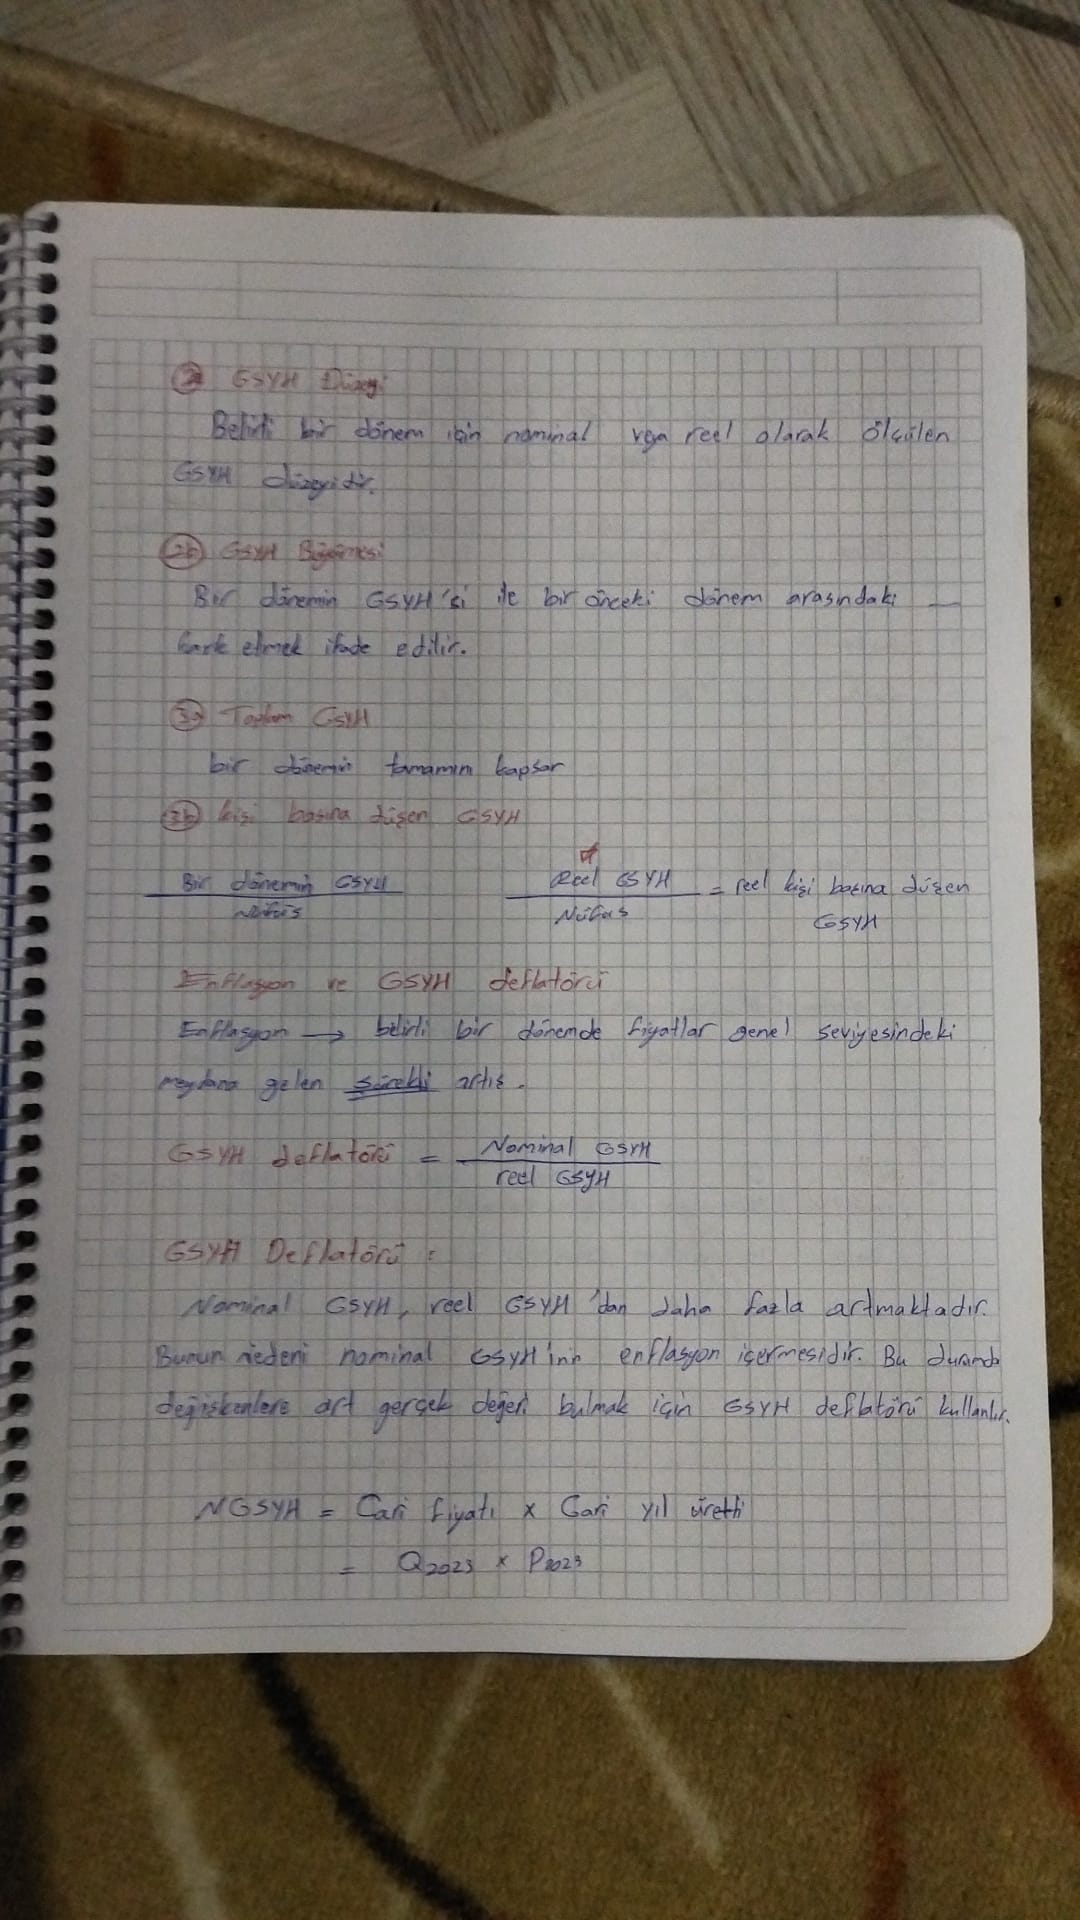 2a GSYH Düzeyi
Belirli bir dönem için nominal veya reel olarak ölçülen
GSYH düzeyidir.
2b GSYH Büyümesi
Bir dönemin GSYH'si ile bir önceki dönem arasındaki
fark etmek ifade edilir.
3a Toplam GSYH
bir dönemin tamamını kapsar
3b kişi başına düşen GSYH
Bir dönemin GSYH
Nüfus
Reel GSYH
Nüfus
= reel kişi başına düşen
GSYH
Enflasyon ve GSYH deflatörü
Enflasyon → belirli bir dönemde fiyatlar genel seviyesindeki
meydana gelen sürekli artış.
GSYH deflatörü = Nominal GSYH
reel GSYH
GSYH Deflatörü :
Nominal GSYH, reel GSYH'dan daha fazla artmaktadır.
Bunun nedeni nominal GSYH'nin enflasyon içermesidir. Bu durumda
değişkenlere ait gerçek değeri bulmak için GSYH deflatörü kullanılır.
NGSYH = Cari fiyatı x Cari yıl
= Q2023 x P2023